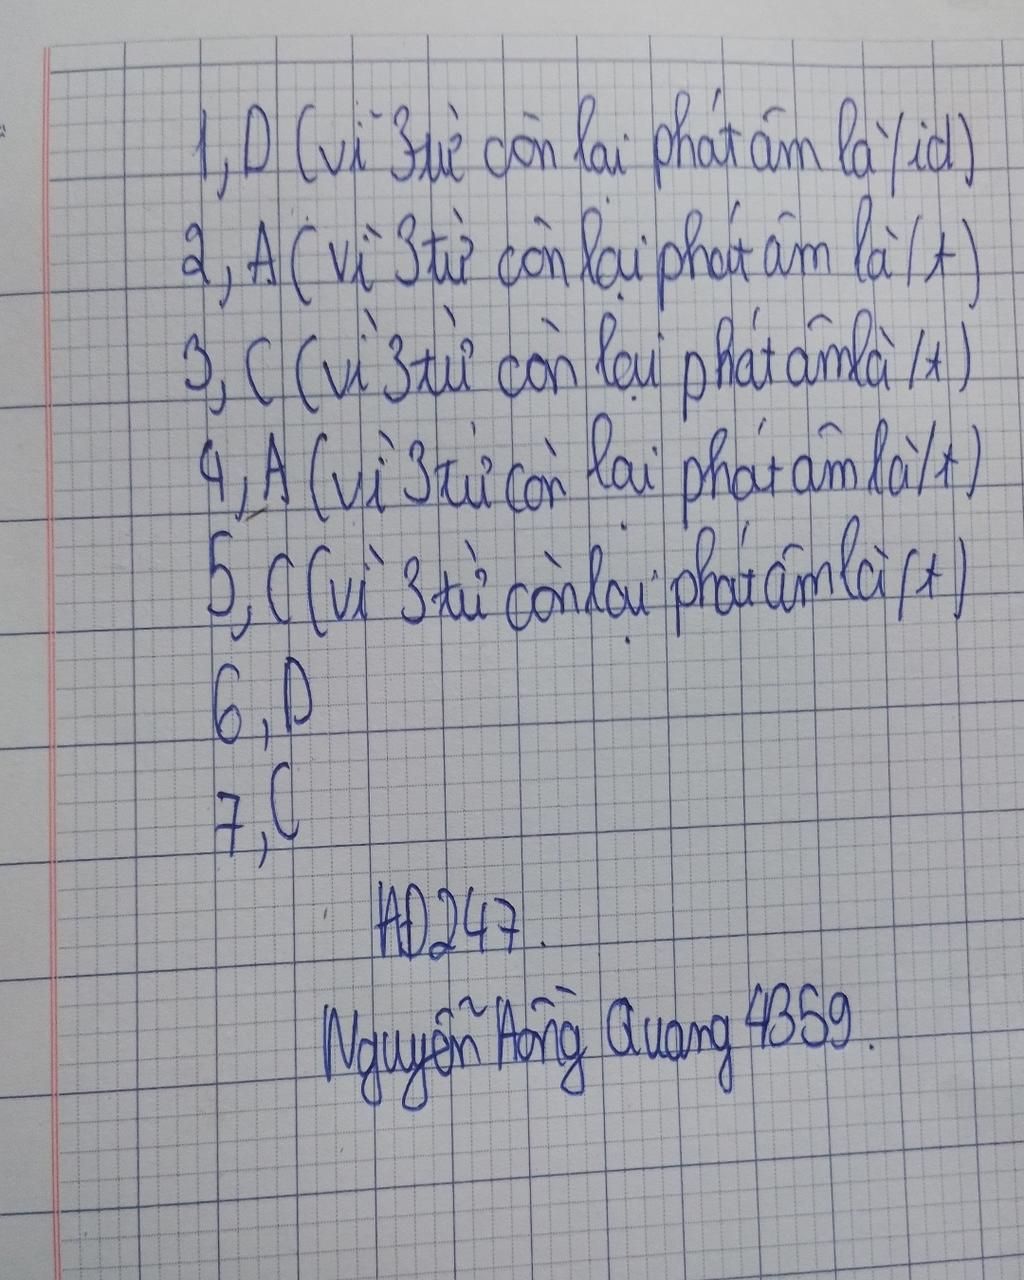 1, D (vì 3 từ còn lại phát âm là /id)
2, A (vì 3 từ còn lại phát âm là /t)
3, C (vì 3 từ còn lại phát âm là /t)
4, A (vì 3 từ còn lại phát âm là /t)
5, C (vì 3 từ còn lại phát âm là /t)
6, D
7, C
HD247.
Nguyễn Hồng Quang 4359.